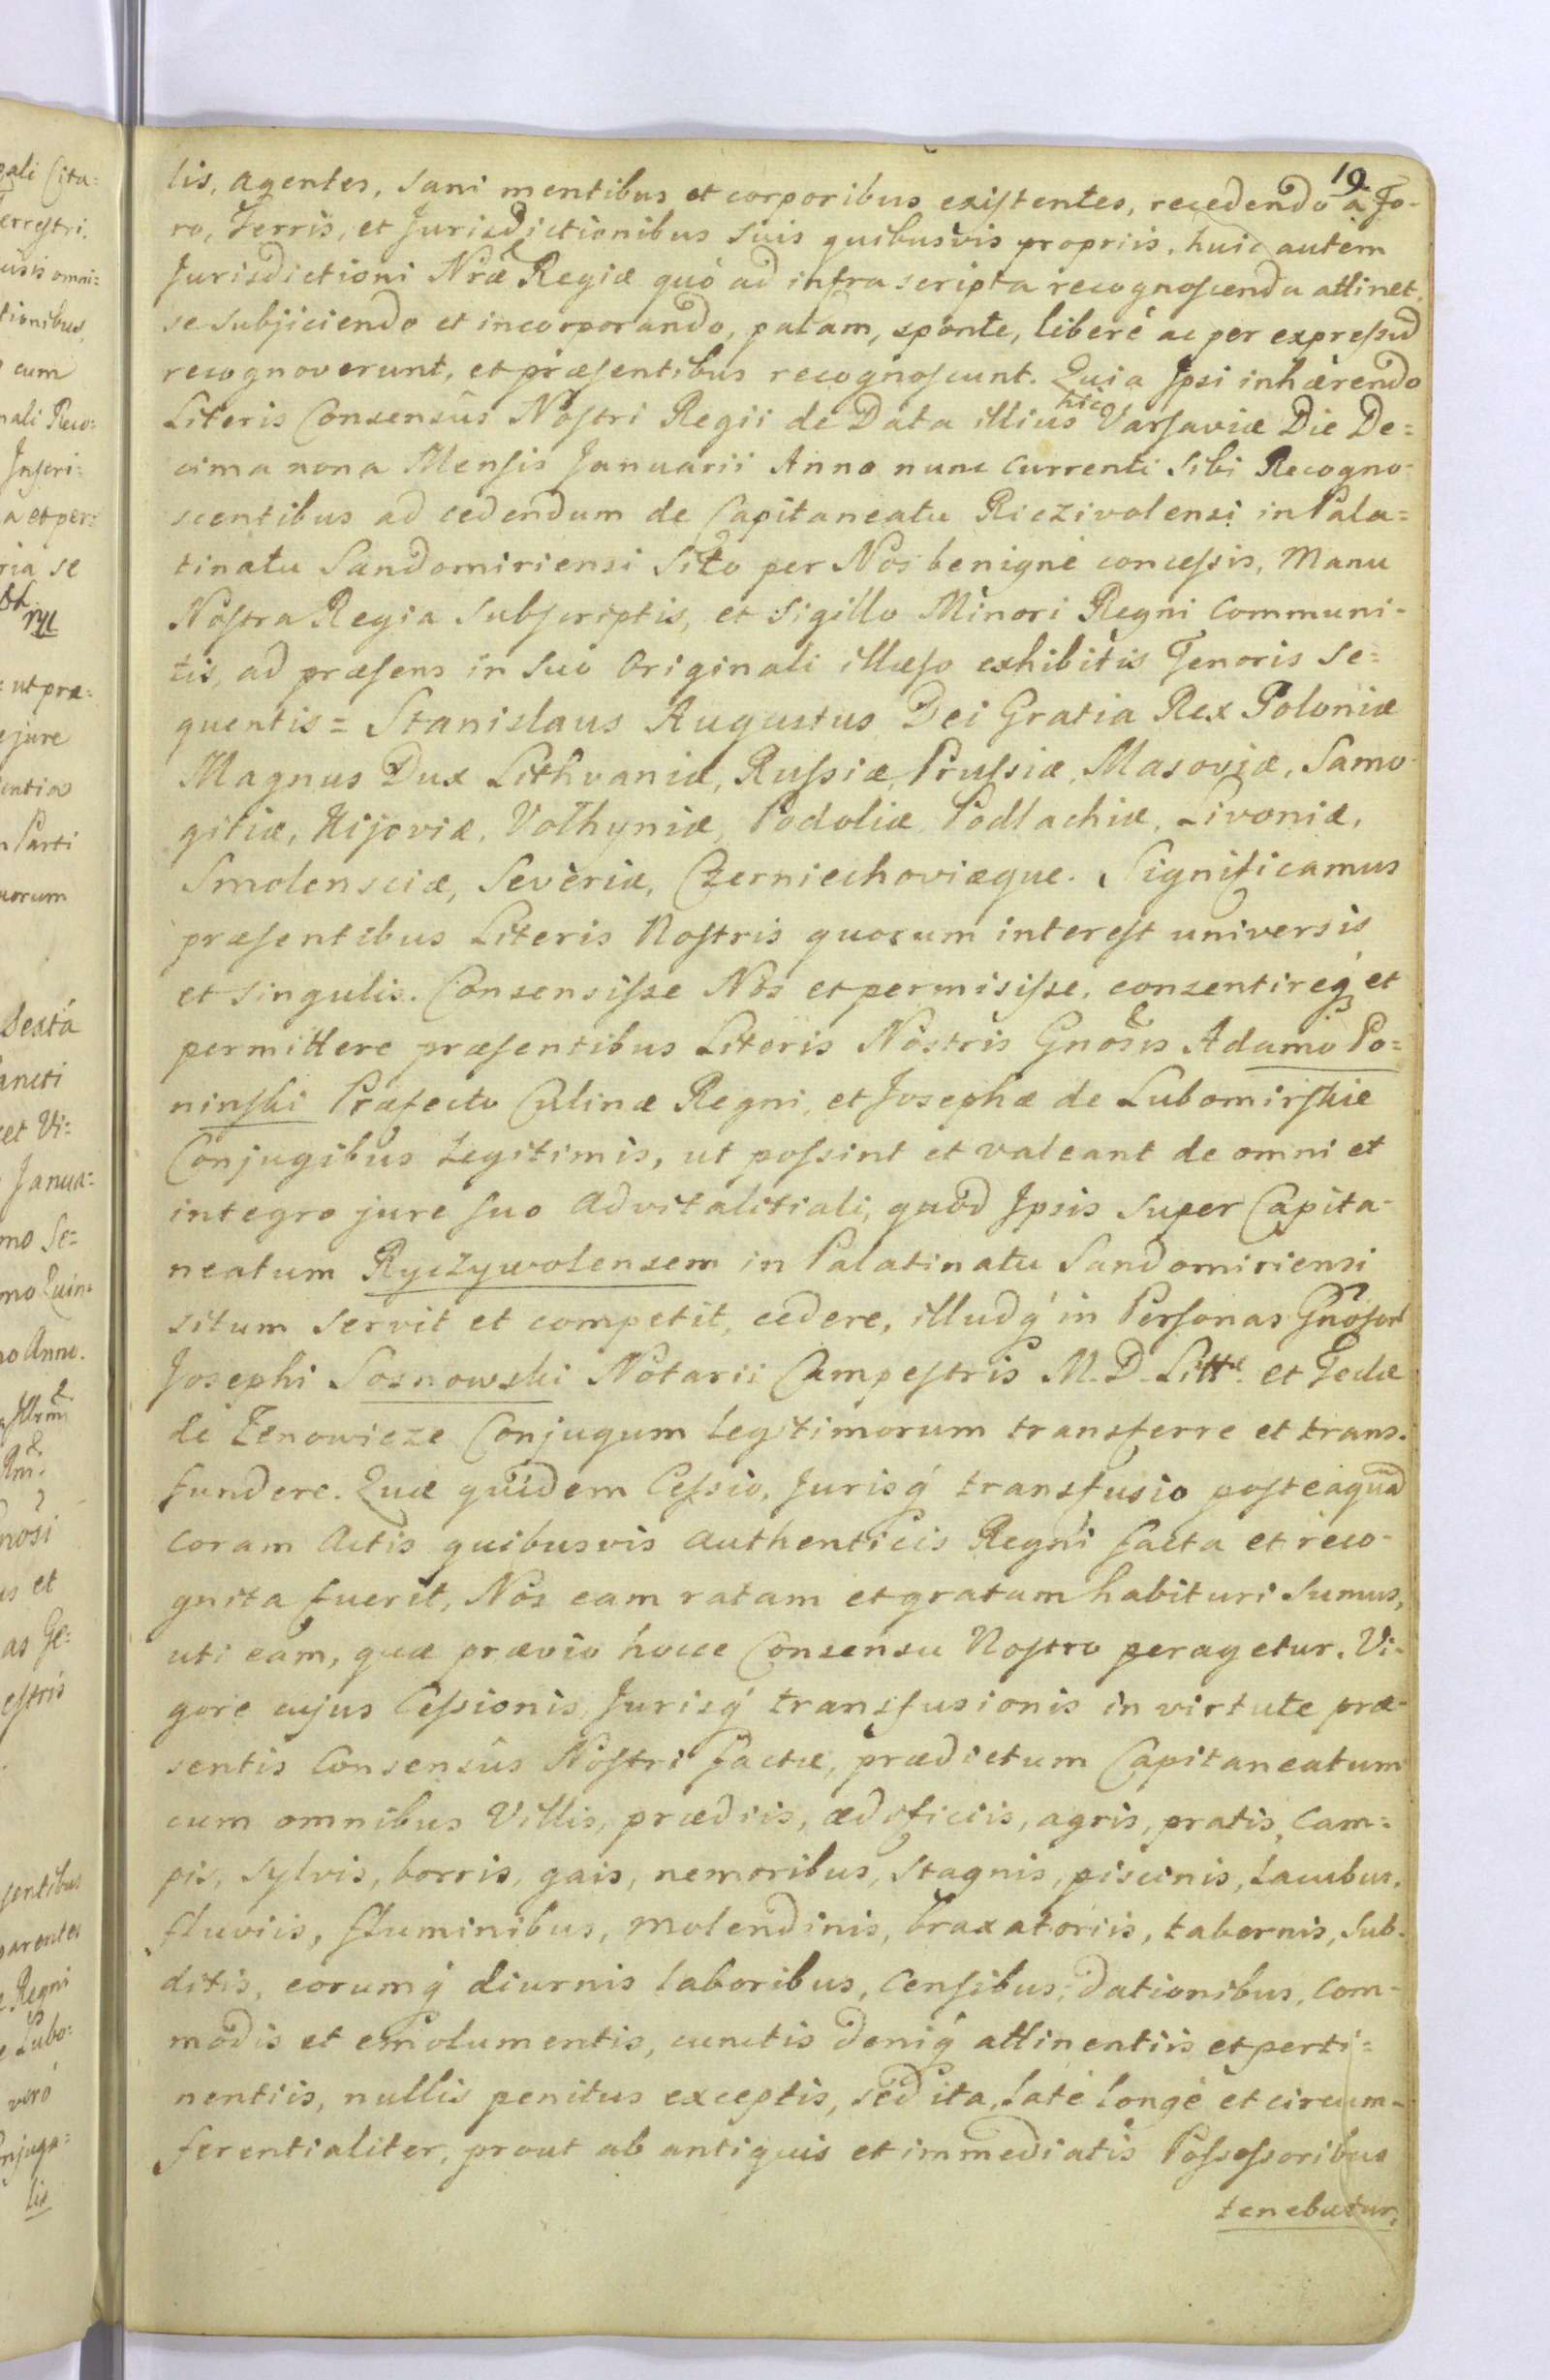 19
lis, agentes, sani mentibus et corporibus existentes, recedendo à Fo-
ro, Terris, et Jurisdictionibus suis quibusvis propriis, huic autem
Jurisdictioni Nræ Regiæ quò ad infra scripta recognoscenda attinet,
se subjiciendo et incorporando, palam, sponte, liberè ac per expressũ
recognoverunt, et præsentibus recognoscunt. Quia Ipsi inhærendo
Literis Consensûs Nostri Regii de Data illius hic Varsaviæ Die De=
cima nona Mensis Januarii Anno nunc currenti sibi Recogno-
scentibus ad cedendum de Capitaneatu Riczivolensi in Pala=
tinatu Sandomiriensi Sito per Nos benignè concessis, Manu
Nostra Regia Subscriptis, et Sigillo Minori Regni Communi-
tis, ad præsens in suo Originali illæso exhibitis Tenoris Se=
quentis = Stanislaus Augustus Dei Gratia Rex Poloniæ
Magnus Dux Lithvaniæ, Russiæ, Prussiæ, Masoviæ, Samo-
gitiæ, Kijoviæ, Volhyniæ, Podoliæ, Podlachiæ, Livoniæ,
Smolensciæ, Severiæ, Czerniechoviæque. Significamus
præsentibus Literis Nostris quorum interest universis
et singulis. Consensisse Nos et permisisse, consentireq́ et
permittere præsentibus Literis Nostris Gnosis Adamo Po=
ninski Præfecto Culinæ Regni, et Josephæ de Lubomirskie
Conjugibus Legitimis, ut possint et valeant de omni et
integro jure suo advitalitiali, quod Ipsis super Capita-
neatum Ryczywolensem in Palatinatu Sandomiriensi
situm servit et competit, cedere, illudq́ in Personas Gnosor
Josephi Sosnowski Notarii Campestris M. D. Litt. et Teclæ
de Zenowicze Conjugum Legitimorum transferre et trans-
fundere. Quæ quidem Cessio, Jurisq́ transfusio posteaquã
coram Actis quibusvis Authenticis Regni facta et reco-
gnita fuerit, Nos eam ratam et gratam habituri Sumus,
uti eam, quæ prævio hocce Consensu Nostro peragetur. Vi-
gore cujus Cessionis, Jurisq́ transfusionis in virtute præ-
sentis Consensûs Nostri factæ, prædictum Capitaneatum
cum omnibus Villis, prædiis, ædificiis, agris, pratis, Cam=
pis, sylvis, borris, gais, nemoribus, stagnis, piscinis, Lacubus,
fluviis, fluminibus, molendinis, braxatoriis, tabernis, Sub-
ditis, eorumq́ diurnis laboribus, Censibus, dationibus, Com-
modis et emolumentis, cunctis deniq́ attinentiis et perti=
nentiis, nullis penitus exceptis, sed ita, latè longè et circum-
ferentialiter, prout ab antiquis et immediatis Possessoribus
tenebatur,